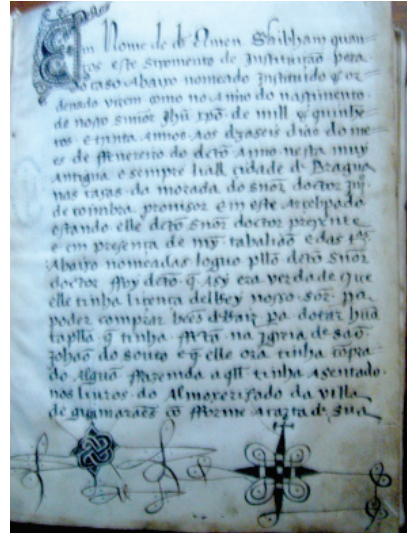 Em Nome de ds Amen. Saibham quan-
tos este estromento de Instituiçaõ pera
o caso abaixo nomeado Instituido & or-
denado virem como no anno do nasçimento
de nosso Snñor Jhũ xpõ de mill & quinhẽ
tos e trinta annos aos dezaseis dias do me
es de ffeuereiro do dcto anno nesta muy
antigua e sempre leall cidade de Bragua
nas casas da morada do Snor doctor Jº
de coimbra prouisor em este arçebpado
estando elle dcto Snor doctor presente
e em presença de my tabaliaõ e das tªs
abaixo nomeadas loguo pllo dcto Snor
doctor ffoy dcto q̃ asy era verdade que
elle tinha licença delRey nosso Sor pa
poder comprar bẽes de Raiz pa dotar hũa
capella q̃ tinha ffcta na Igreia de saõ
Johaõ do souto e q̃ elle ora tinha cõpra-
do alguã ffazenda a qll tinha asentado
nos liuros do Almoxerifado da villa
de guimaraẽs cõfforme a carta de sua